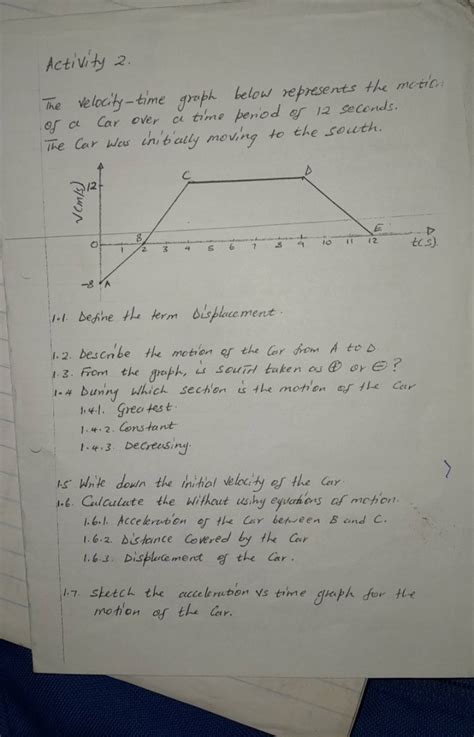 Activity 2.
The velocity-time graph below represents the motion
of a Car over a time period of 12 seconds.
The Car was initially moving to the south.
V(m/s)
12
C
D
B
E
0
1 2 3 4 5 6 7 8 9 10 11 12
t(s)
-8 A
1.1. Define the term Displacement.
1.2. Describe the motion of the Car from A to D.
1.3. From the graph, is south taken as ⊕ or ⊖?
1.4 During which section is the motion of the Car
1.4.1. Greatest.
1.4.2. Constant
1.4.3. Decreasing.
1.5 Write down the initial velocity of the Car
1.6. Calculate the without using equations of motion.
1.6.1. Acceleration of the Car between B and C.
1.6.2. Distance Covered by the Car
1.6.3. Displacement of the Car.
1.7. Sketch the acceleration vs time graph for the
motion of the Car.